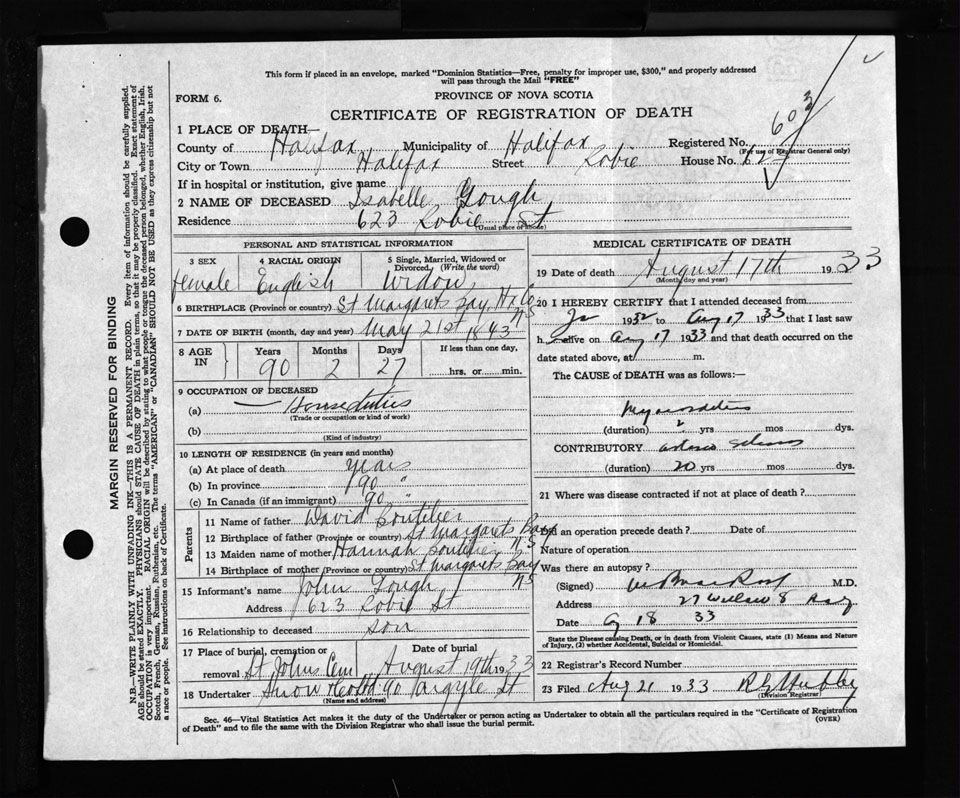 This form if placed in an envelope, marked "Dominion Statistics—Free, penalty for improper use, $300," and properly addressed
will pass through the Mail "FREE"
FORM 6.
PROVINCE OF NOVA SCOTIA
CERTIFICATE OF REGISTRATION OF DEATH
603
1 PLACE OF DEATH—
County of Halifax Municipality of Halifax Registered No.
(For use of Registrar General only)
City or Town Halifax Street Robie House No. 623
If in hospital or institution, give name
2 NAME OF DECEASED Isabelle Gough
Residence 623 Robie St
(Usual place of abode)
PERSONAL AND STATISTICAL INFORMATION
3 SEX 4 RACIAL ORIGIN 5 Single, Married, Widowed or Divorced, (Write the word)
female English Widow
6 BIRTHPLACE (Province or country) St Margarets Bay, Hx Co NS
7 DATE OF BIRTH (month, day and year) May 21st 1843
8 AGE IN Years Months Days If less than one day,
90 2 27 hrs. or min.
9 OCCUPATION OF DECEASED
(a) — House duties
(Trade or occupation or kind of work)
(b)
(Kind of industry)
10 LENGTH OF RESIDENCE (in years and months)
(a) At place of death years
(b) In province 90 "
(c) In Canada (if an immigrant) 90 "
Parents
11 Name of father David Boutilier
12 Birthplace of father (Province or country) St Margarets Bay NS
13 Maiden name of mother Hannah Boutilier
14 Birthplace of mother (Province or country) St Margarets Bay NS
15 Informant's name John Gough
Address 623 Robie St
16 Relationship to deceased son
17 Place of burial, cremation or removal Date of burial
St Johns Cem August 19th 1933
18 Undertaker Snow & Co Ltd 90 Argyle St
(Name and address)
MEDICAL CERTIFICATE OF DEATH
19 Date of death August 17th 1933
(Month, day and year)
20 I HEREBY CERTIFY that I attended deceased from
1932 to Aug 17 1933 that I last saw
h alive on Aug 17 1933 and that death occurred on the
date stated above, at m.
The CAUSE of DEATH was as follows:—
Myocarditis
(duration) 2 yrs mos dys.
CONTRIBUTORY
(duration) 20 yrs mos dys.
21 Where was disease contracted if not at place of death?
Did an operation precede death? Date of
Nature of operation
Was there an autopsy?
(Signed) M.D.
Address 27
Date 18 33
State the Disease causing Death, or in death from Violent Causes, state (1) Means and Nature
of Injury, (2) whether Accidental, Suicidal or Homicidal.
22 Registrar's Record Number
23 Filed Aug 21 1933
(Division Registrar)
Sec. 46—Vital Statistics Act makes it the duty of the Undertaker or person acting as Undertaker to obtain all the particulars required in the "Certificate of Registration
of Death" and to file the same with the Division Registrar who shall issue the burial permit.
(OVER)
MARGIN RESERVED FOR BINDING
N.B.—WRITE PLAINLY WITH UNFADING INK—THIS IS A PERMANENT RECORD. Every item of information should be carefully supplied.
AGE should be stated EXACTLY. PHYSICIANS should STATE CAUSE OF DEATH in plain terms, so that it may be properly classified. Exact statement of
OCCUPATION is very important. RACIAL ORIGIN will be described by stating to what people or tongue the deceased person belonged, whether English, Irish,
Scotch, French, German, Russian, Ruthenian, etc. The terms "AMERICAN" or "CANADIAN" SHOULD NOT BE USED as they express citizenship but not
a race or people. See instructions on back of Certificate.